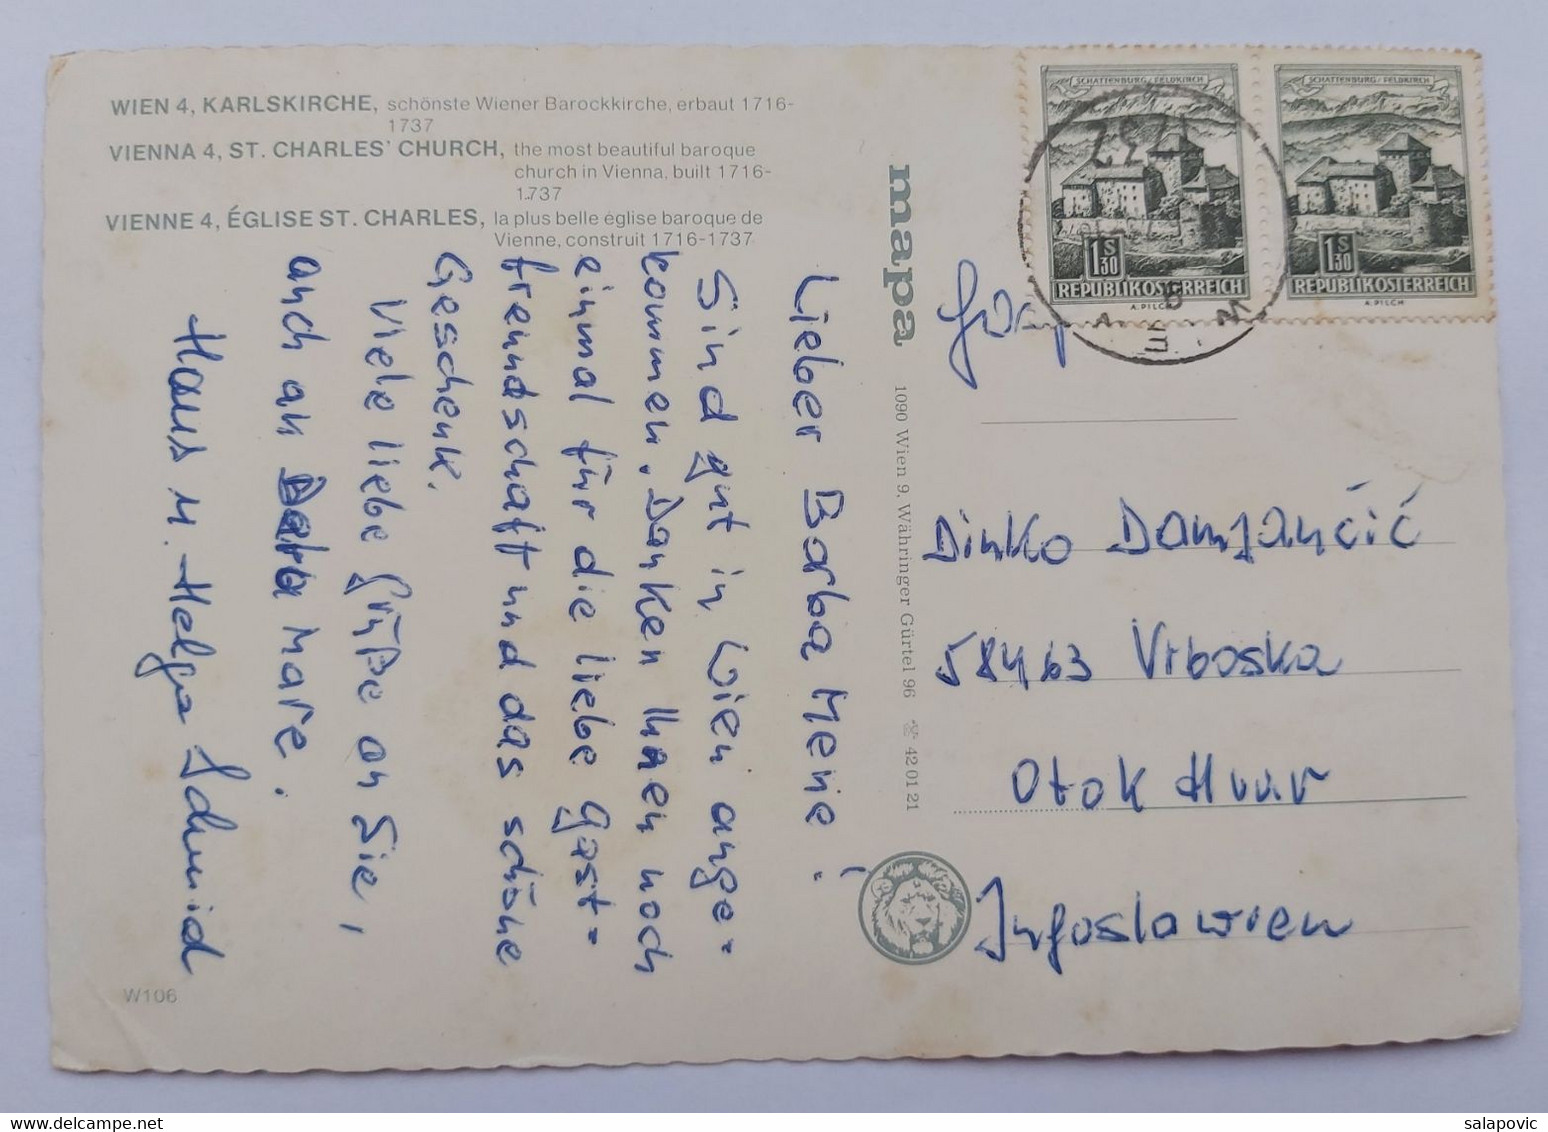 WIEN 4, KARLSKIRCHE, schönste Wiener Barockkirche, erbaut 1716-
1737
VIENNA 4, ST. CHARLES' CHURCH, the most beautiful baroque
church in Vienna, built 1716-
1737
VIENNE 4, ÉGLISE ST. CHARLES, la plus belle église baroque de
Vienne, construit 1716-1737
Lieber Barba Mene!
Sind gut in Wien ange-
kommen. Danken Ihnen noch
einmal für die liebe Gast-
freundschaft und das schöne
Geschenk.
Viele liebe Grüße an Sie,
auch an Mare.
Hans u. Helga Schmid
W106
mapa
1090 Wien 9, Währinger Gürtel 96 ☎ 42 01 21
SCHATTENBURG / FELDKIRCH
1 S 30
REPUBLIK ÖSTERREICH
A. PILCH
SCHATTENBURG / FELDKIRCH
1 S 30
REPUBLIK ÖSTERREICH
A. PILCH
WIEN
Dinko Damjančić
58463 Vrboska
Otok Hvar
Jugoslawien
salapovic